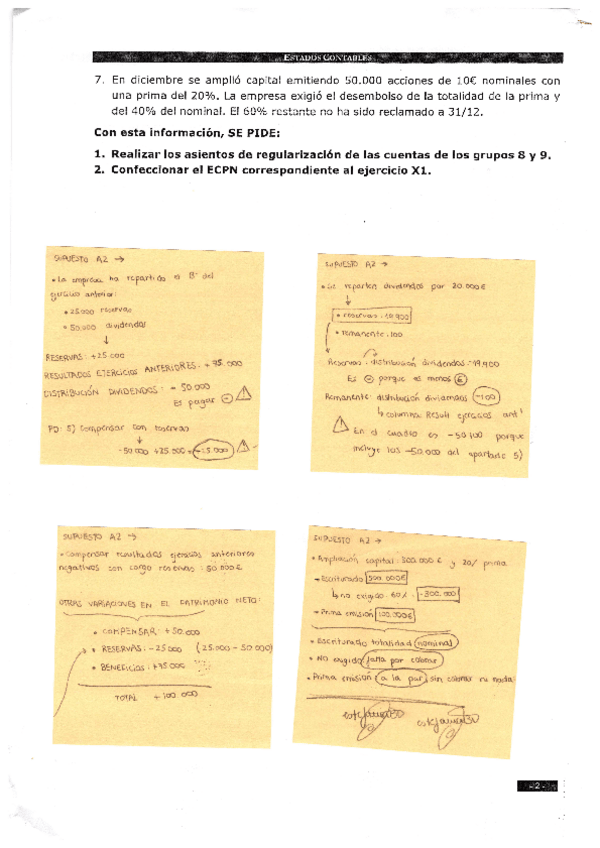 ESTADOS CONTABLES
7. En diciembre se amplió capital emitiendo 50.000 acciones de 10€ nominales con
una prima del 20%. La empresa exigió el desembolso de la totalidad de la prima y
del 40% del nominal. El 60% restante no ha sido reclamado a 31/12.
Con esta información, SE PIDE:
1. Realizar los asientos de regularización de las cuentas de los grupos 8 y 9.
2. Confeccionar el ECPN correspondiente al ejercicio X1.
SUPUESTO A2 →
• La empresa ha repartido el Bº del
anterior:
• 25.000 reservas
• 50.000 dividendos
↓
RESERVAS: +25.000
RESULTADOS EJERCICIOS ANTERIORES: +75.000
DISTRIBUCIÓN DIVIDENDOS: - 50.000
Es pagar -
5) compensar con reservas
↓
-50.000 +25.000 = -25.000
SUPUESTO A2 →
• Se reparten dividendos por 20.000€
↓
• reservas: 19.900
• remanente: 100
Reservas: distribución dividendos: 19.900
Es - porque es menos
Remanente: distribución dividendos -100
↳ columna: Result ejercicios ant
En el cuadro es -50.100 porque
incluye los -50.000 del apartado 5)
SUPUESTO A2 →
• Compensar resultados ejercicios anteriores
negativos con cargo reservas: 50.000€
OTRAS VARIACIONES EN EL PATRIMONIO NETO:
• COMPENSAR: +50.000
• RESERVAS: -25.000 (25.000 - 50.000)
• BENEFICIOS: +75.000
TOTAL +100 000
SUPUESTO A2 →
• Ampliación capital: 500.000€ y 20% prima
→ Escriturado 500.000€
↳ no exigido: 60% = -300.000
→ Prima emisión 100.000€
• Escriturado totalidad nominal
• NO exigido falta por cobrar
• Prima emisión a la par, sin cobrar ni nada
- 2 -